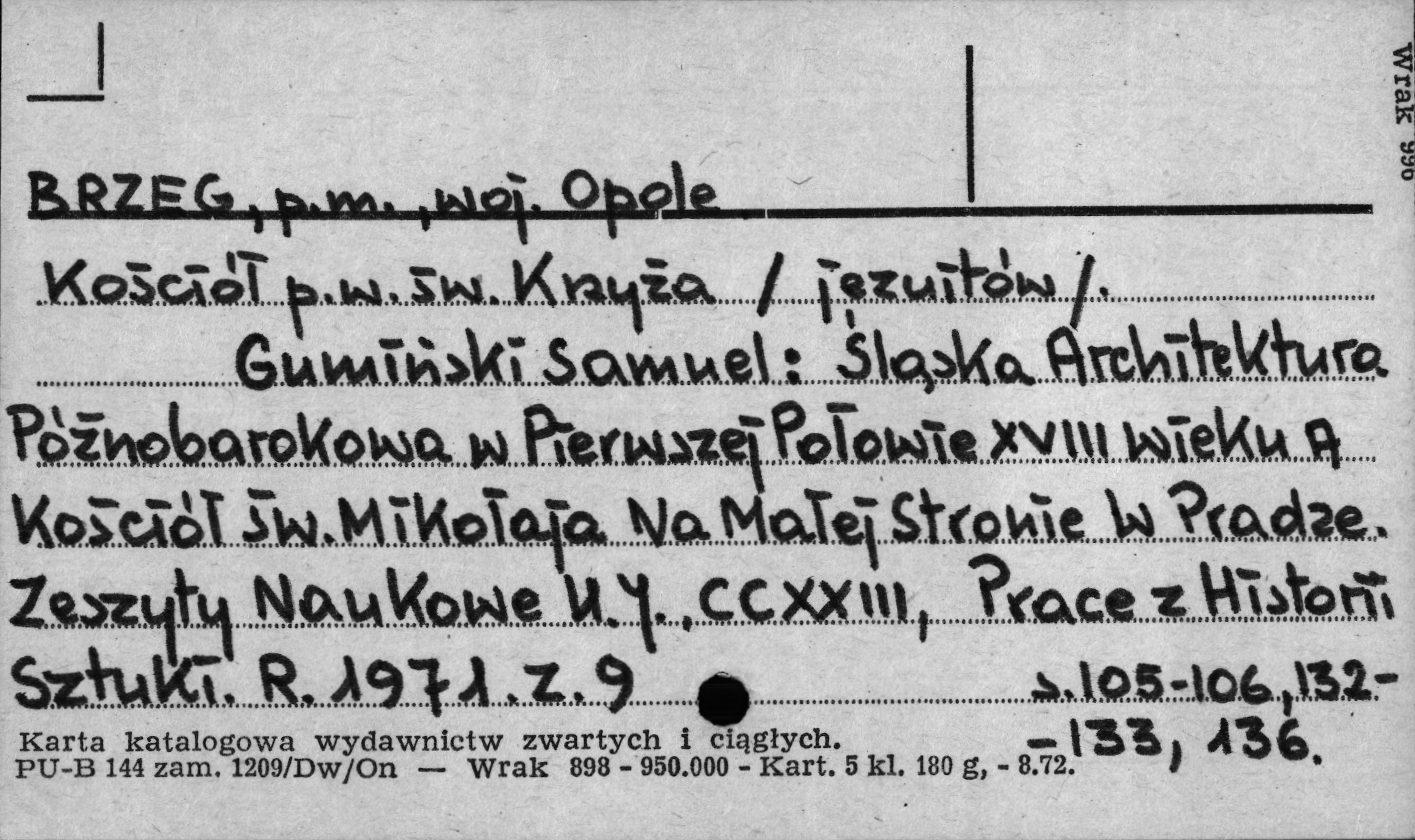 BRZEG, p.m., woj. Opole
Kościół p.w. św. Krzyża / jezuitów /.
Gumiński Samuel: Śląska Architektura
Późnobarokowa w Pierwszej Połowie XVIII wieku A
Kościół św. Mikołaja Na Małej Stronie W Pradze.
Zeszyty Naukowe U.J., CCXXIII, Prace z Historii
Sztuki. R. 1971. Z. 9 s. 105-106, 132-
-133, 136.
Karta katalogowa wydawnictw zwartych i ciągłych.
PU-B 144 zam. 1209/Dw/On — Wrak 898 - 950.000 - Kart. 5 kl. 180 g, - 8.72.
Wrak 996